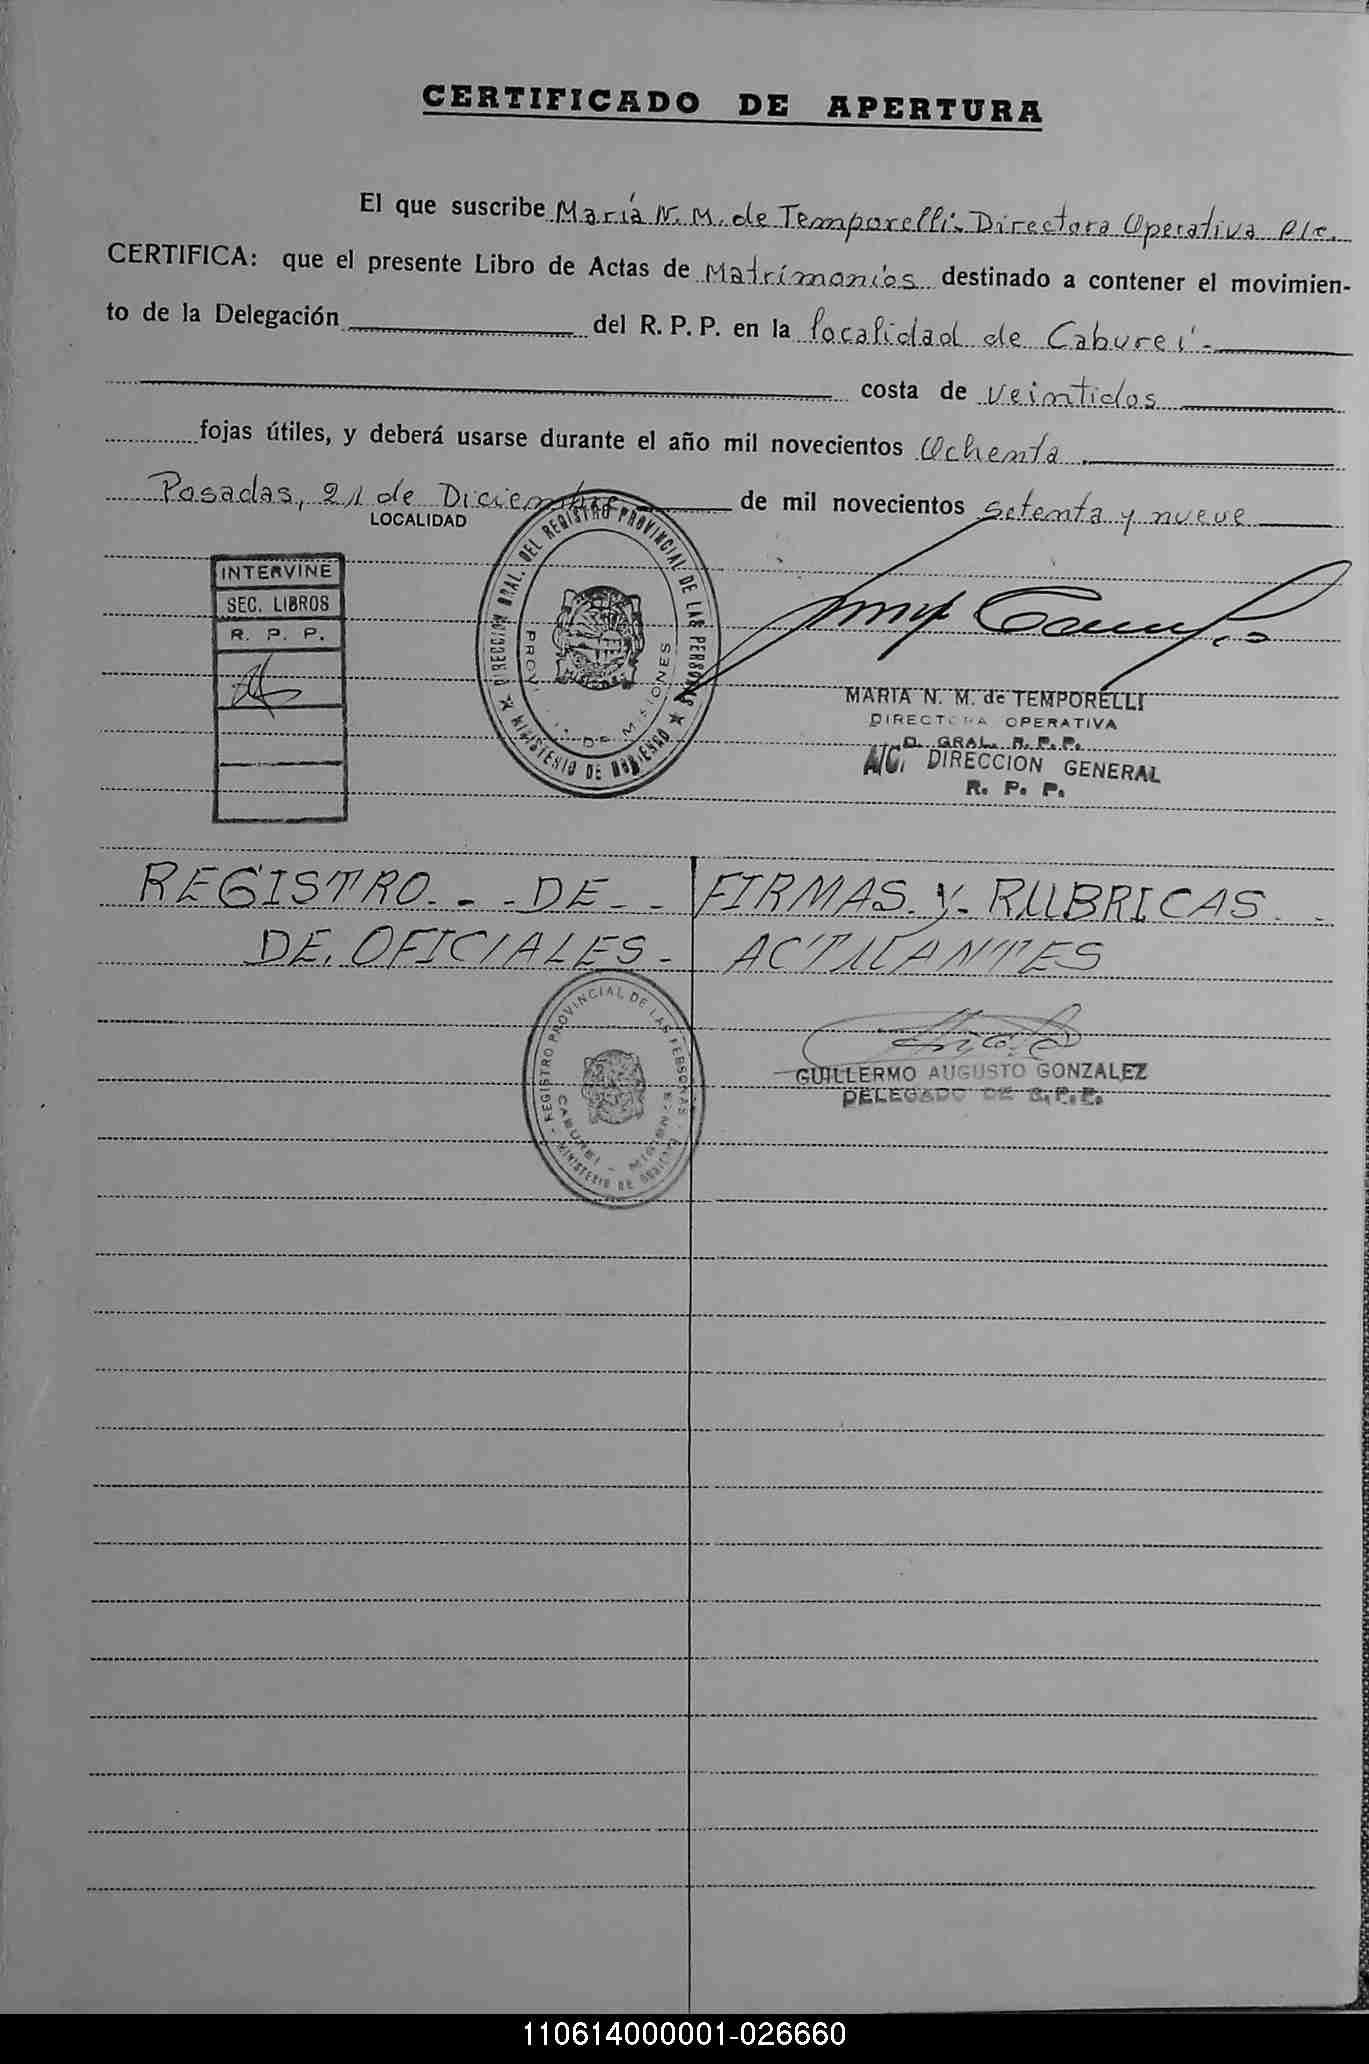 CERTIFICADO DE APERTURA
El que suscribe María N. M. de Temporelli. Directora Operativa A/C.
CERTIFICA: que el presente Libro de Actas de Matrimonios destinado a contener el movimien-
to de la Delegación del R. P. P. en la localidad de Cabureí.-
costa de veintidos
fojas útiles, y deberá usarse durante el año mil novecientos Ochenta
Posadas, 21 de Diciembre de mil novecientos setenta y nueve
LOCALIDAD
INTERVINE
SEC. LIBROS
R. P. P.
DIRECCION GRAL. DEL REGISTRO PROVINCIAL DE LAS PERSONAS
MINISTERIO DE GOBIERNO
MISIONES
MARIA N. M. de TEMPORELLI
DIRECTORA OPERATIVA
D. GRAL. R. P. P.
A/C. DIRECCION GENERAL
R. P. P.
REGISTRO - - DE - - FIRMAS Y RUBRICAS
DE OFICIALES - ACTUANTES
REGISTRO PROVINCIAL DE LAS PERSONAS
CABUREI - MISIONES
MINISTERIO DE GOBIERNO
GUILLERMO AUGUSTO GONZALEZ
DELEGADO DE R. P. P.
110614000001-026660